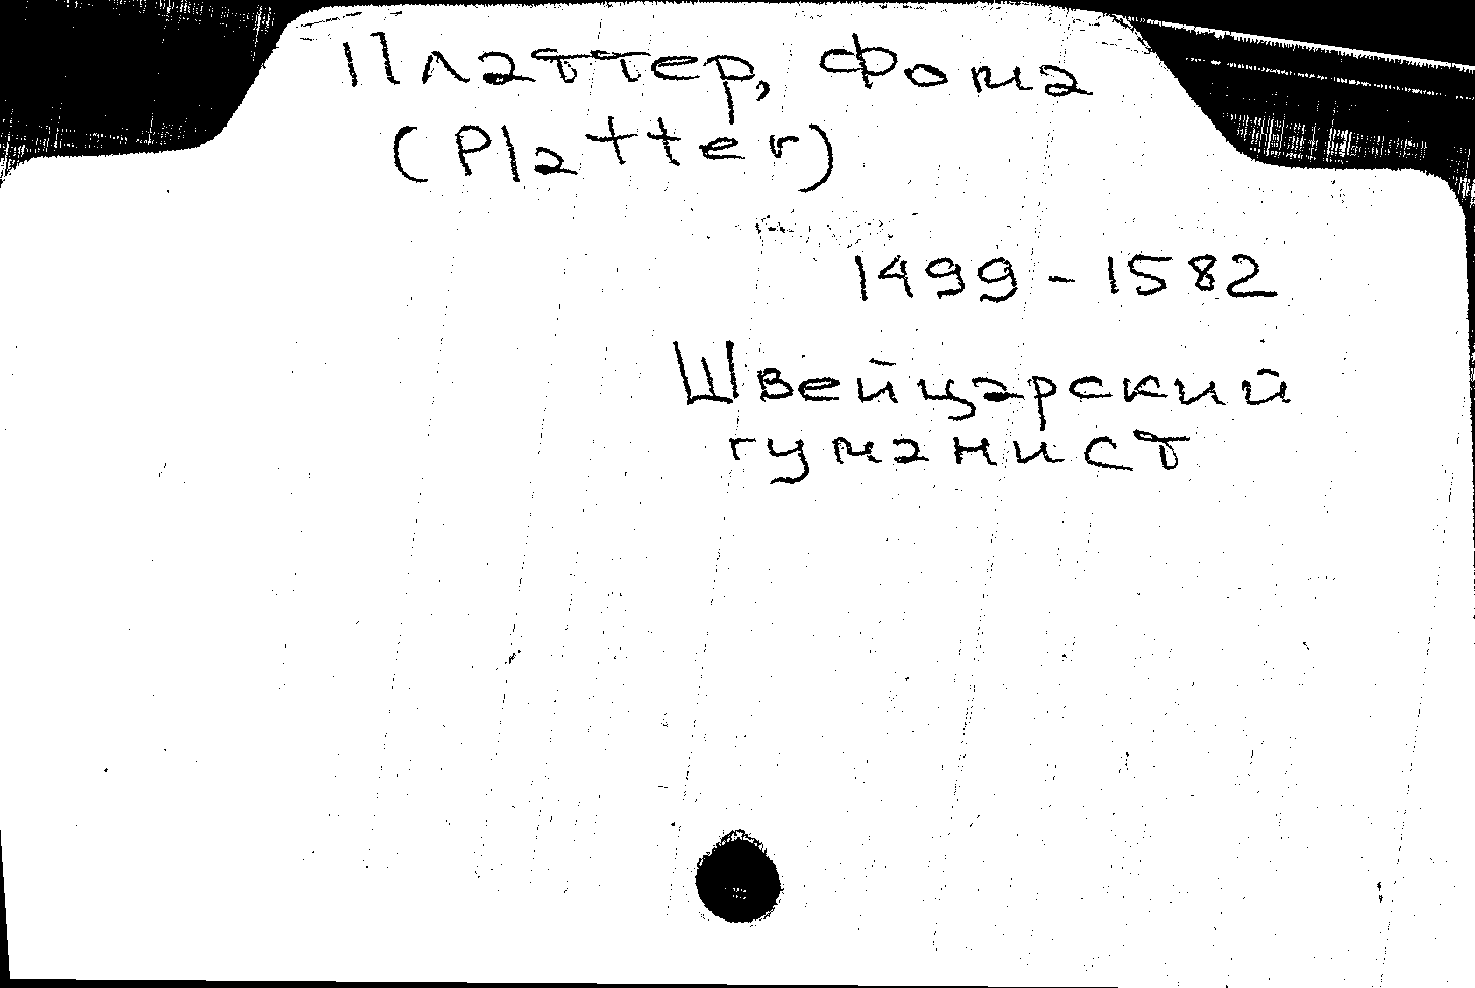 Платтер, Фома
(Platter)
1499-1582
Швейцарский
гуманист